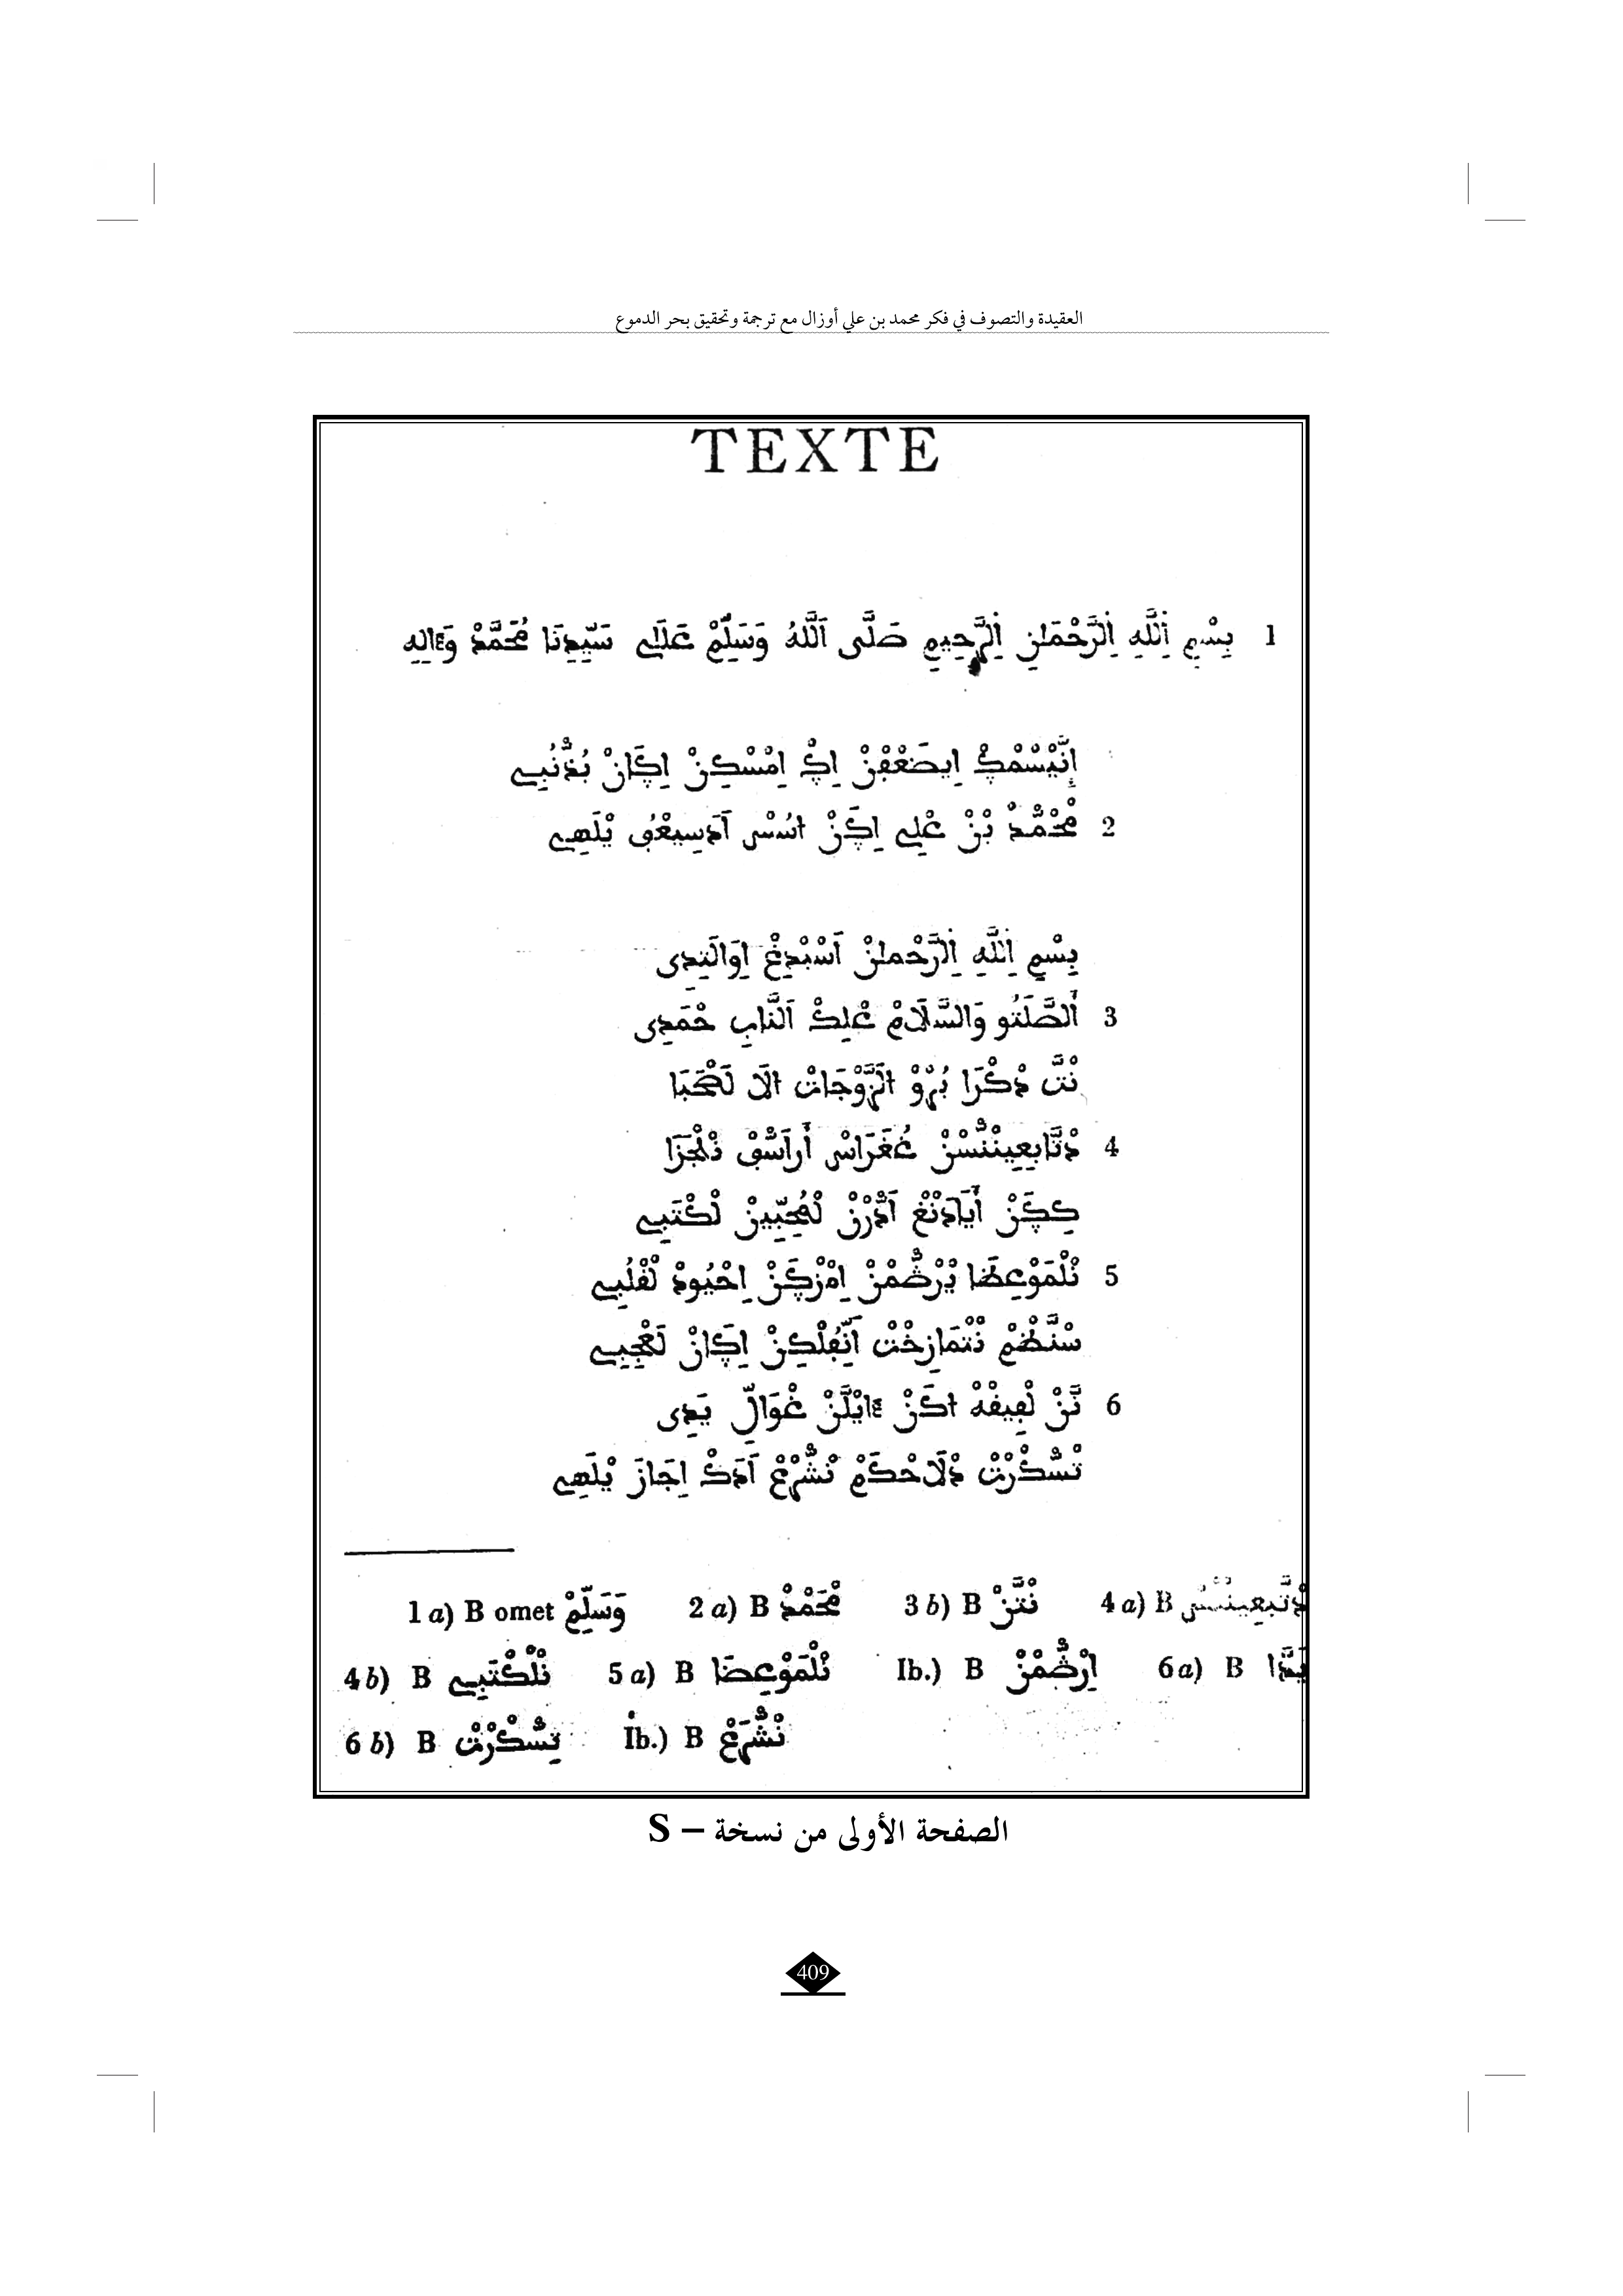 العقيدة والتصوف في فكر محمد بن علي أوزال مع ترجمة وتحقيق بحر الدموع
TEXTE
1 بِسْمِ اِللَّهِ اِلرَّحْمَٰنِ اِلرَّحِيمِ صَلَّى اَللَّهُ وَسَلِّمْ عَلَىٰ سَيِّدِنَا مُحَمَّدْ وَءَالِهِ
إِنَّيْسْمْڭْ اِيضَعْفْنْ اِڭْ اِمْسْكِنْ اِڭَانْ بُدّْنُبِي
2 مْحْمّْدْ بْنْ عْلِي اِڭَنْ اسُسْ اَدَسِيعْفُ يْلَهِي
بِسْمِ اِللَّهِ اِلرَّحْمٰنْ اَسْبْدِغْ اِوَالَنِدِى
3 أَلصَّلَتُو وَالسَّلَامْ عْلِكْ اَلنَّابِ حْمَدِى
نْتَّ دْكْرَا بُرْوْ الَزَّوْجَاتْ الَا لَصّْحَبَا
4 دْتَّابِعِينْنّْسْنْ غُغَرَاسْ أَراَسّْفْ دْلْجَزَا
كِڭَنْ أَيَادْنْغْ اَدّْرْنْ لْمُحِبِّينْ لْكْتَبِي
5 نْلْمَوْعِظَا يْرْشّْمْنْ اِمْزْڭَنْ اِحْيُودْ لْقْلُبِي
سْنَّظْمْ نْتْمَازِخْتْ اَنُّفِلْكِنْ اِڭَانْ لَعْجِبِي
6 نَّنْ لْفِيقْهْ اكَنْ ءَايْلَّنْ غْوَالِّ يَدِى
تَسّْكْرْتْ دْلَاحْكَمْ نْشّْرْعْ اَدَكْ اِجَازَ يْلَهِي
1 a) B omet وَسَلِّمْ 2 a) B مْحَمّْدْ 3 b) B نْتَّنْ 4 a) B
4 b) B نْلْكْتَبِي 5 a) B نْلْمَوْعِضَا Ib.) B اِرْشّْمْنْ 6 a) B يَدَّا
6 b) B تِسّْكْرْتْ Ib.) B نْشّْرَعْ
الصفحة الأولى من نسخة – S
409